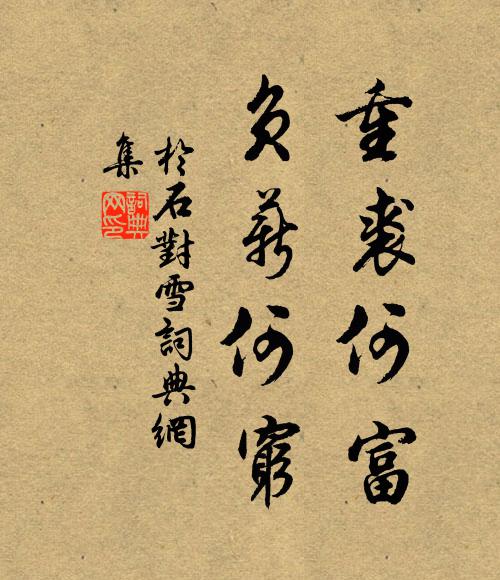 重裘何富
負薪何窮
於石對雪詞典網
集
詞典網印